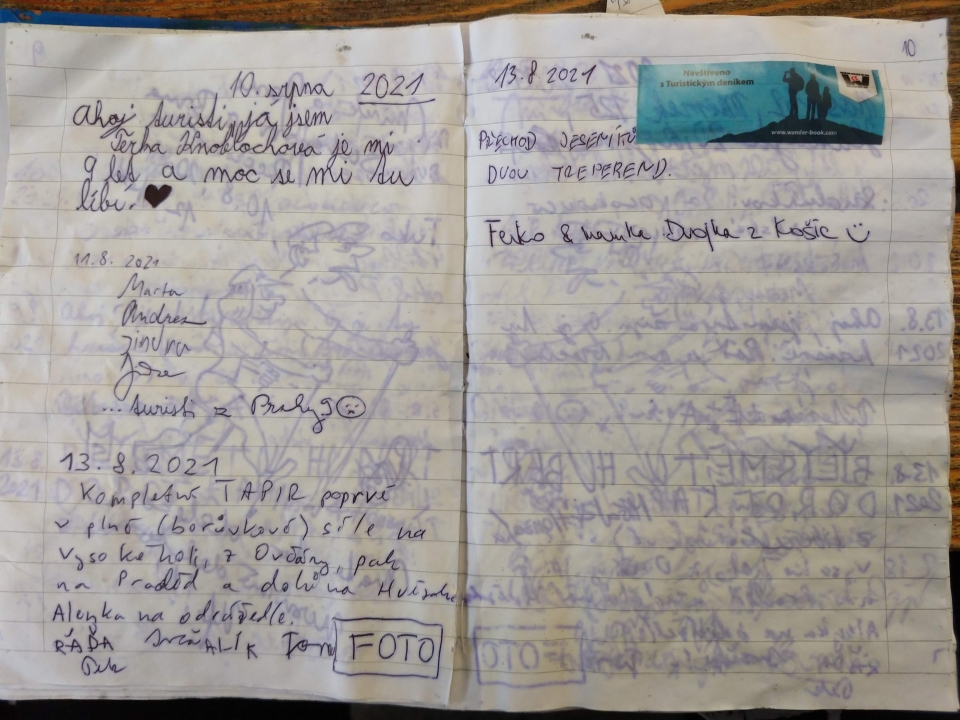 10. srpna 2021
Ahoj turisti, já jsem
Terka Knoblochová je mi
9 let a moc se mi tu
líbí.
11.8. 2021
Marta
Andrea
... turisti z Prahy
13.8.2021
Kompletní TAPIR poprvé
v plné (borůvkové) síle na
Vysoké holi, z Ovčárny, pak
na Praděd a dolů na
Alenka na odrážedle.
RÁĎA ALÍK Tom
FOTO
10
13.8 2021
Navštíveno
s Turistickým deníkem
www.wander-book.com
PŘECHOD JESENÍKŮ
DVOU TREPEREND.
Ferko & mamka Dvojka z Košíc